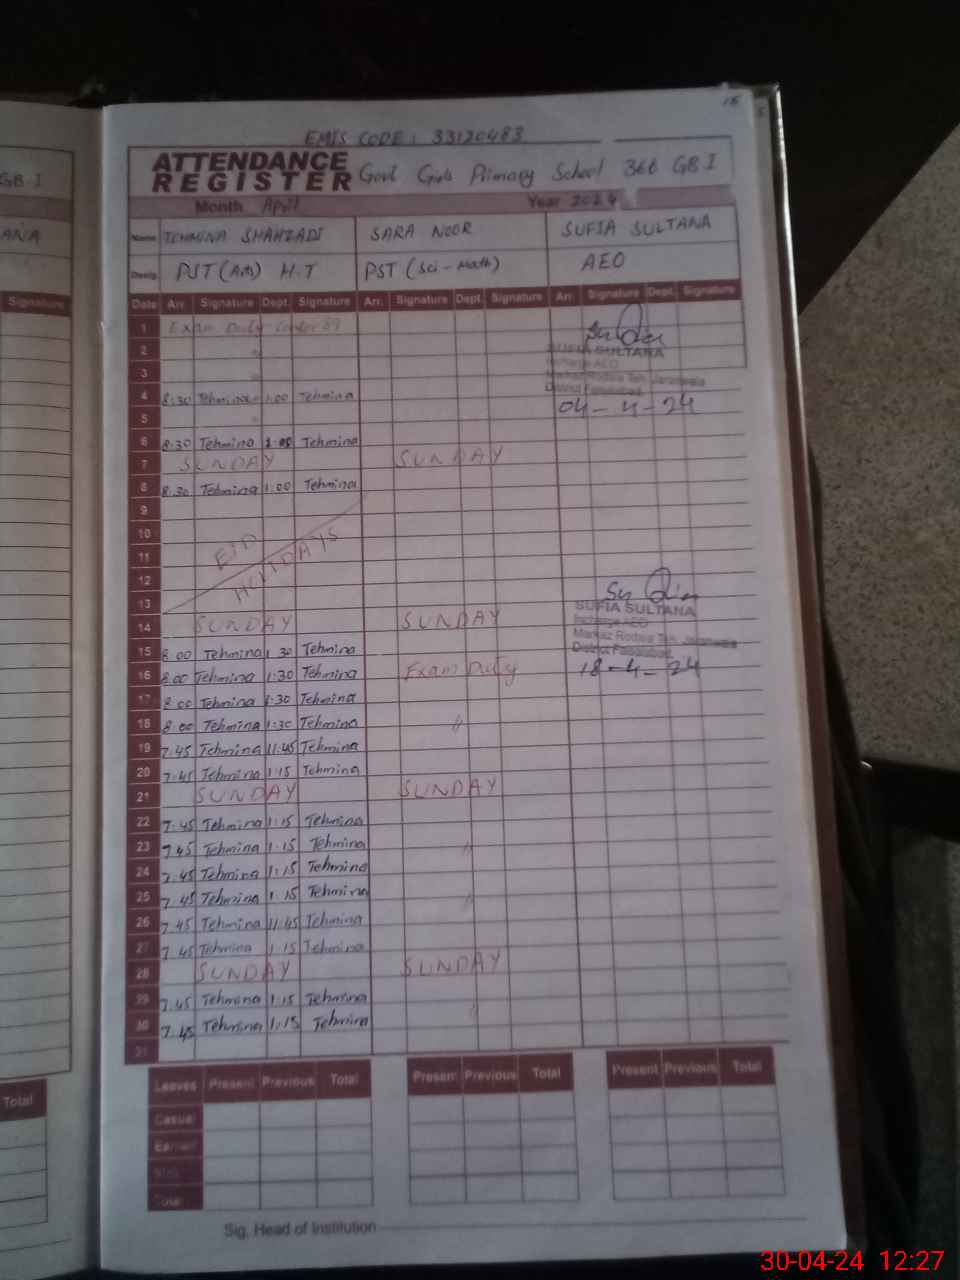 15
EMIS CODE: 33120483
ATTENDANCE REGISTER Govt Girls Primary School 366 GB I
Month April Year 2024
Name TEHMINA SHAHZADI SARA NOOR SUFIA SULTANA
Desig. PST (Arts) H.T PST (Sci-Math) AEO
Date Arr. Signature Dept. Signature Arr. Signature Dept. Signature Arr. Signature Dept. Signature
1 Exam Duty
2 SUFIA SULTANA
3 Incharge AEO
Markaz Rodala Teh. Jaranwala
District Faisalabad
4 8:30 Tehmina 1:00 Tehmina 04-4-24
5
6 8:30 Tehmina Tehmina
7 SUNDAY SUNDAY
8 8:30 Tehmina 1:00 Tehmina
9
10 EID
11 HOLIDAYS
12
13 SUFIA SULTANA
14 SUNDAY SUNDAY Incharge AEO
Markaz Rodala Teh. Jaranwala
15 8:00 Tehmina 1:30 Tehmina District Faisalabad
16 8:00 Tehmina 1:30 Tehmina Exam Duty 18-4-24
17 8:00 Tehmina 1:30 Tehmina
18 8:00 Tehmina 1:30 Tehmina //
19 7:45 Tehmina 11:45 Tehmina
20 7:45 Tehmina 1:15 Tehmina
21 SUNDAY SUNDAY
22 7:45 Tehmina 1:15 Tehmina
23 7:45 Tehmina 1:15 Tehmina //
24 7:45 Tehmina 1:15 Tehmina
25 7:45 Tehmina 1:15 Tehmina //
26 7:45 Tehmina 11:45 Tehmina
27 7:45 Tehmina 1:15 Tehmina
28 SUNDAY SUNDAY
29 7:45 Tehmina 1:15 Tehmina //
30 7:45 Tehmina 1:15 Tehmina
31
Leaves Present Previous Total Present Previous Total Present Previous Total
Casual
Total
Sig. Head of Institution
GB I
ANA
Signature
Total
30-04-24 12:27